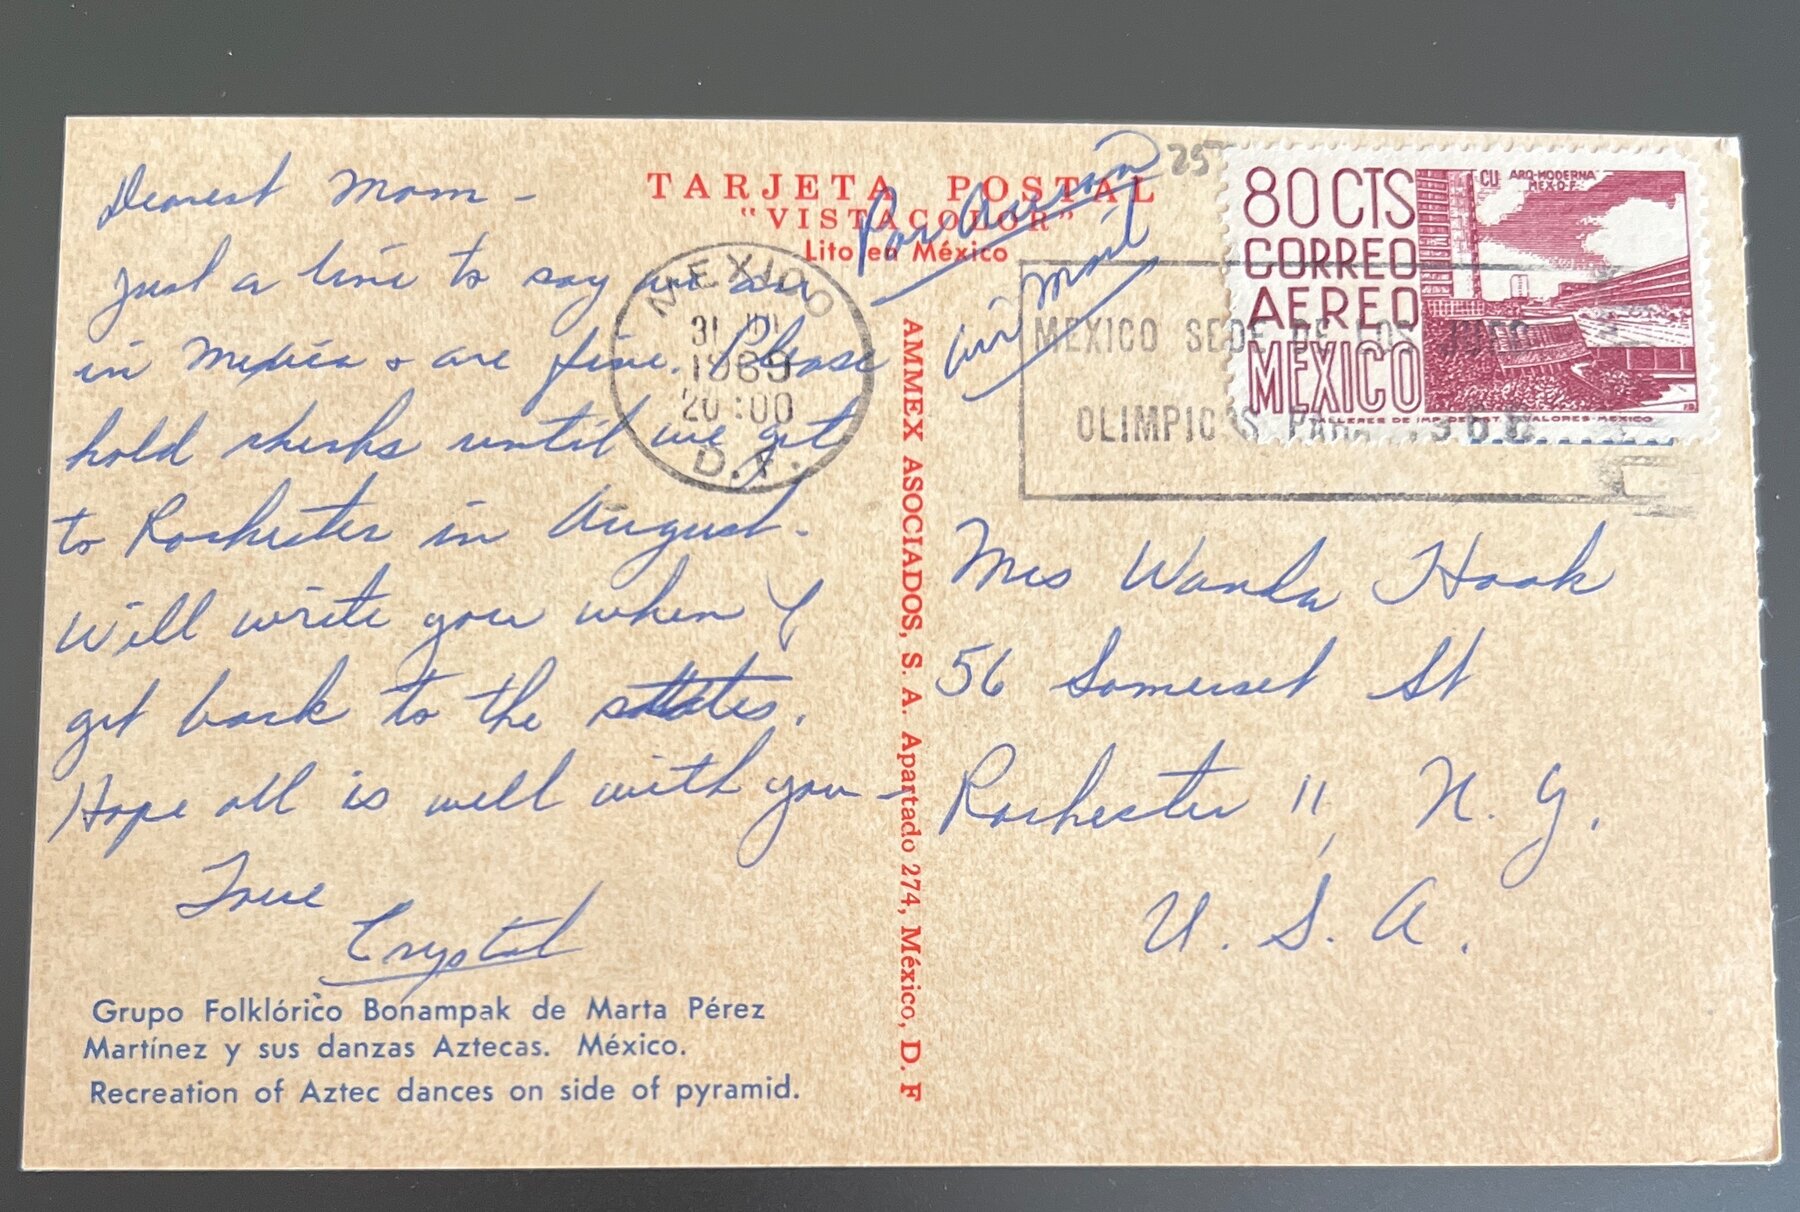 Dearest Mom -
Just a line to say we are
in Mexico & are fine. Please
hold checks until we get
to Rochester in August.
Will write you when I
get back to the states.
Hope all is well with you -
Love
Crystal
Grupo Folklórico Bonampak de Marta Pérez
Martínez y sus danzas Aztecas. México.
Recreation of Aztec dances on side of pyramid.
TARJETA POSTAL
"VISTACOLOR"
Lito en México
Por Avion
air mail
25
MEXICO
31 JUL
20:00
D.F.
AMMEX ASOCIADOS, S. A. Apartado 274, México, D. F
80 CTS
CORREO
AEREO
MEXICO
CU ARQ-MODERNA
MEX-D-F-
TALLERES DE IMP. DE EST. Y VALORES-MEXICO
MEXICO SEDE DE LOS
OLIMPICOS PARA
Mrs Wanda Hook
56 Somerset St
Rochester 11, N.Y.
U.S.A.